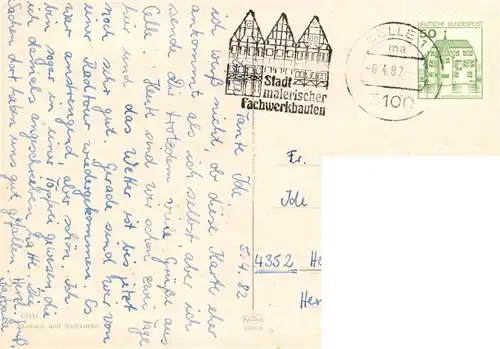 5.4.82
Tante Ide,
ich weiß nicht, ob diese Karte eher
ankommt als ich selbst, aber ich
sende Dir trotzdem viele Grüße aus
Celle. Heute sind wir schon zwei Tage
hier und das Wetter ist bis jetzt
noch sehr gut. Gerade sind wir von
einer Radtour wiedergekommen. Es
war anstrengend, aber schön. Ich
bin sogar in einer Töpferei gewesen, die
ich damals angeschrieben hatte. Die
Sachen dort haben uns gut gefallen. Herzl. Gruß,
CELLE
Rathaus und Stadtkirche
Stadt
malerischer
Fachwerkbauten
CELLE 1
ma
-6.4.82
3100
DEUTSCHE BUNDESPOST
50
Fr.
Ide
4352 He
Her